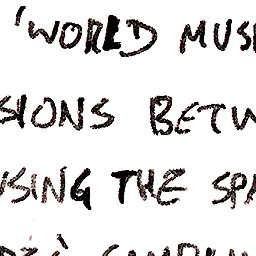 'WORLD MUSI
SIONS BETW
USING THE SPA